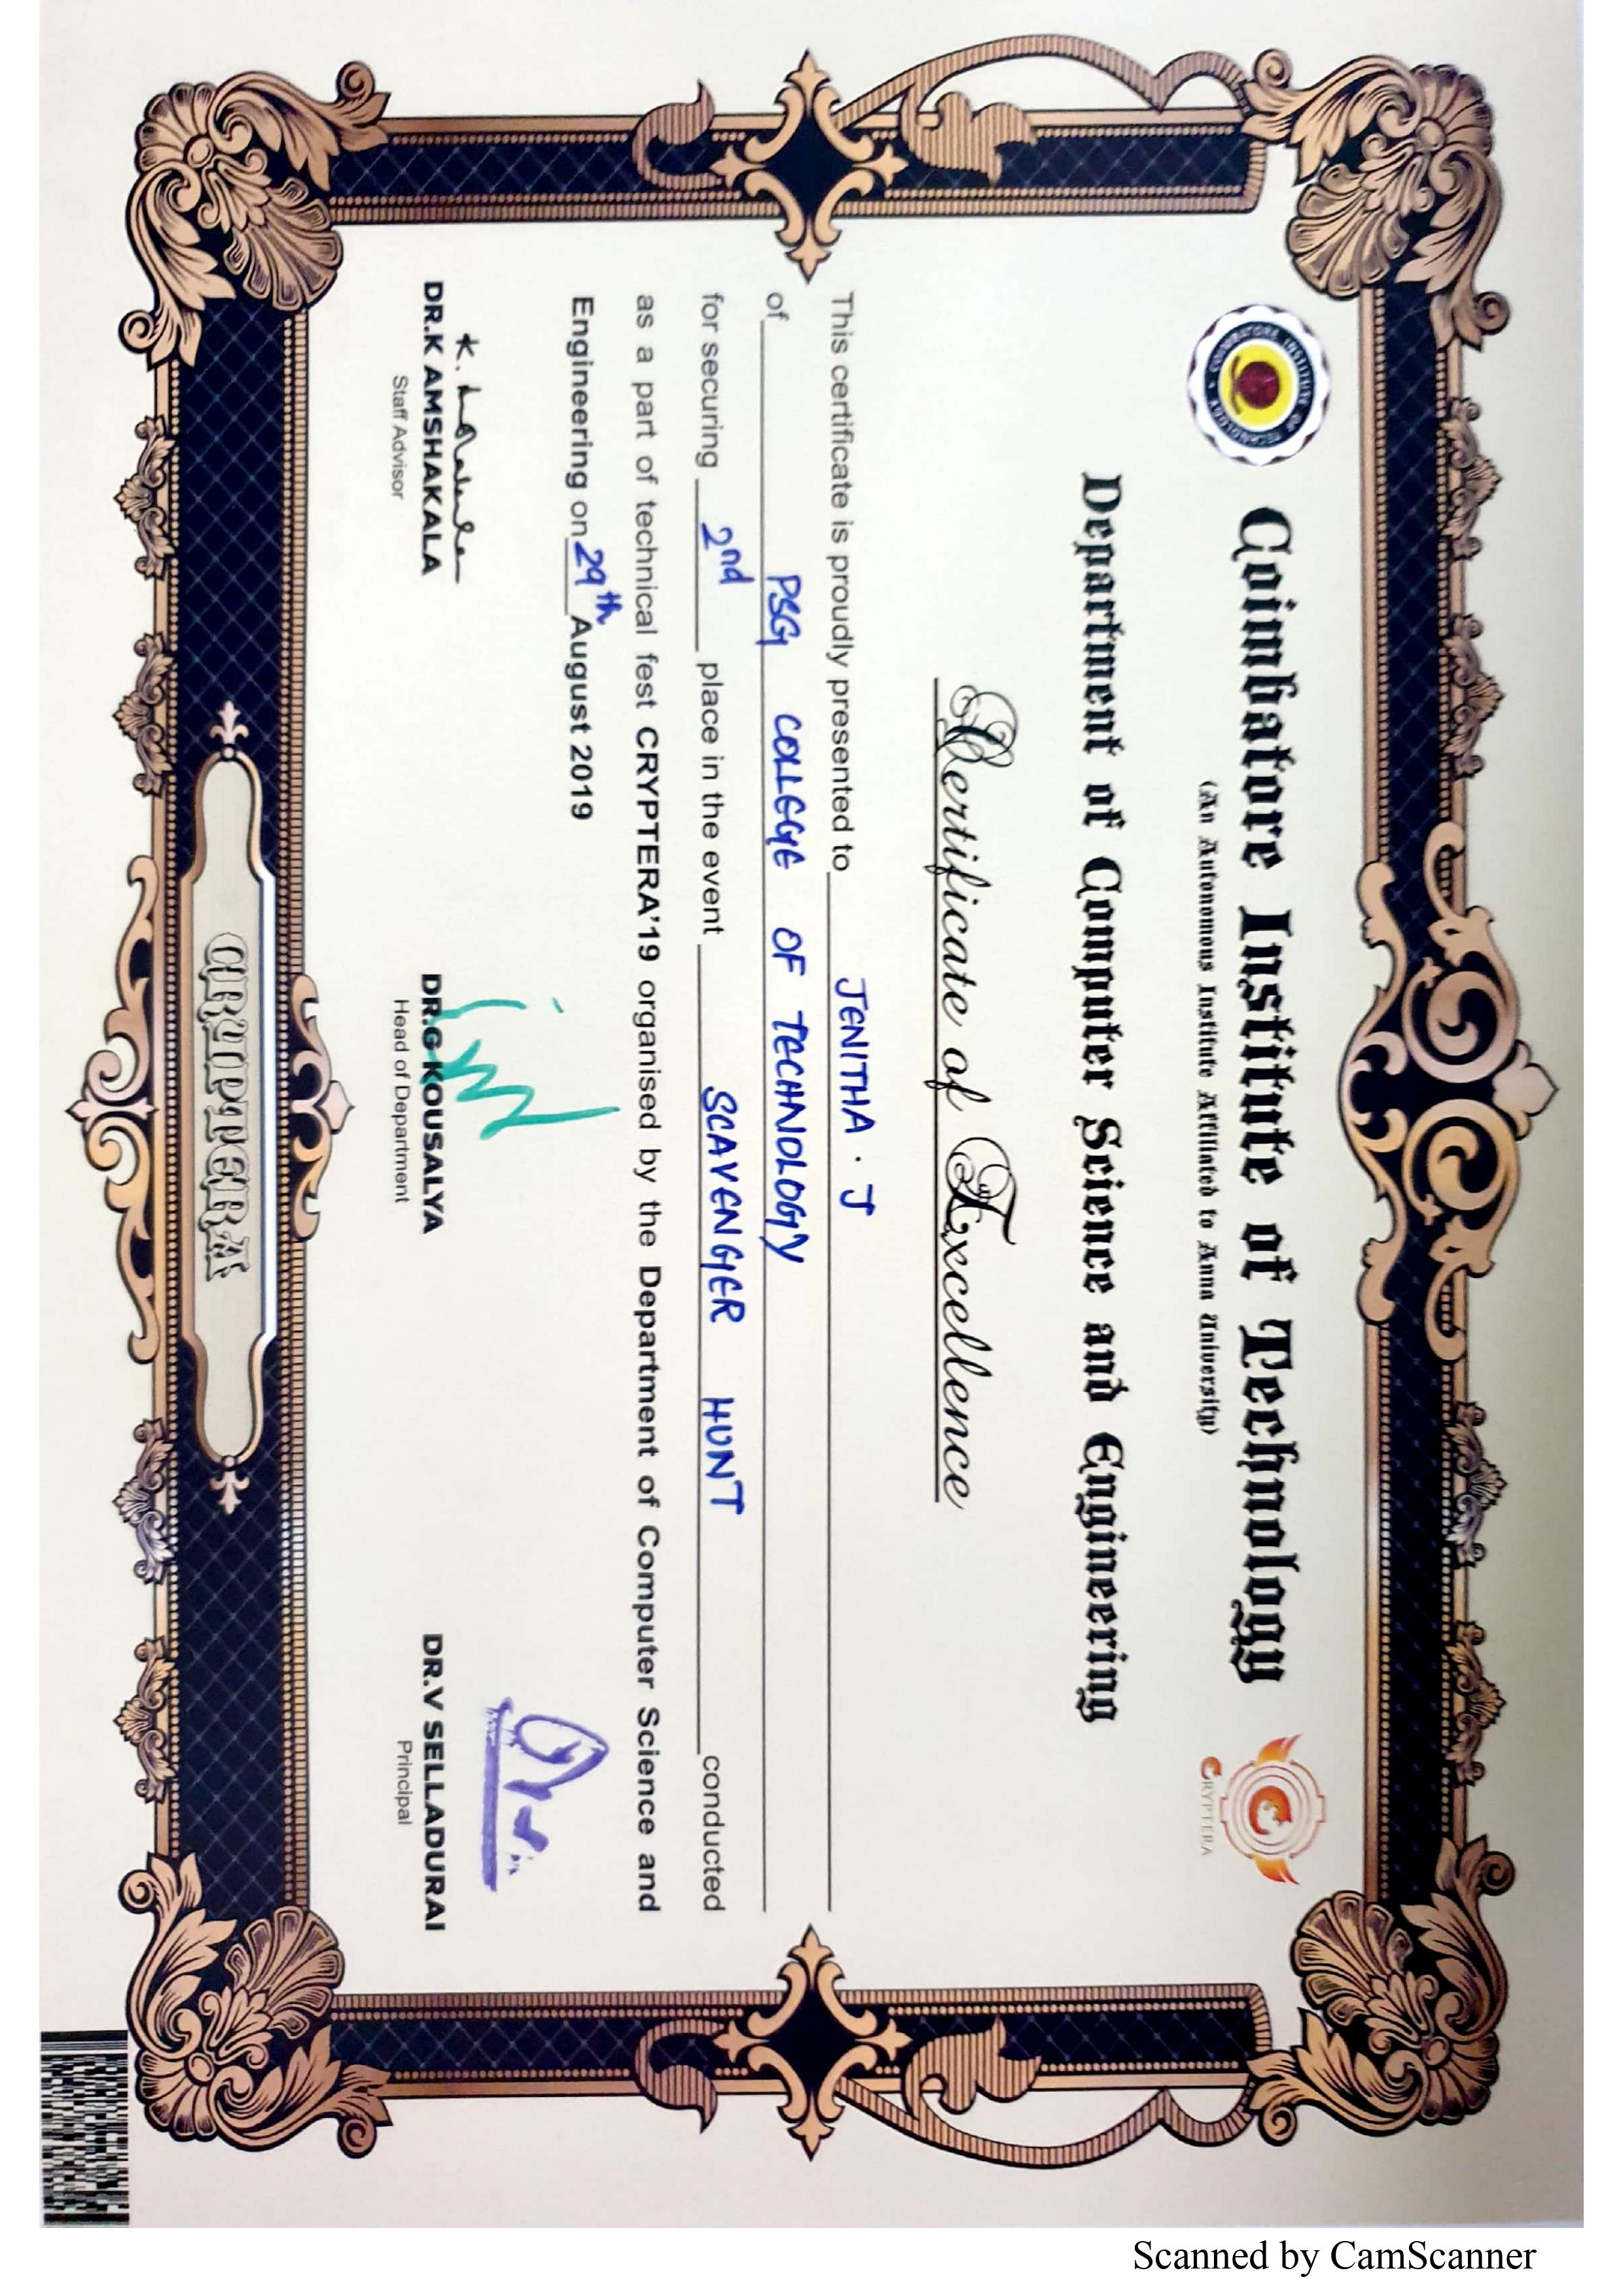 Coimbatore Institute of Technology
(An Autonomous Institute Affiliated to Anna University)
COIMBATORE INSTITUTE OF TECHNOLOGY
CRYPTERA
Department of Computer Science and Engineering
Certificate of Excellence
This certificate is proudly presented to JENITHA . J
of PSG COLLEGE OF TECHNOLOGY
for securing 2nd place in the event SCAVENGER HUNT conducted
as a part of technical fest CRYPTERA'19 organised by the Department of Computer Science and
Engineering on 29th August 2019
K. Amshakala
DR.K AMSHAKALA
Staff Advisor
DR.G KOUSALYA
Head of Department
DR.V SELLADURAI
Principal
CRYPTERA
Scanned by CamScanner